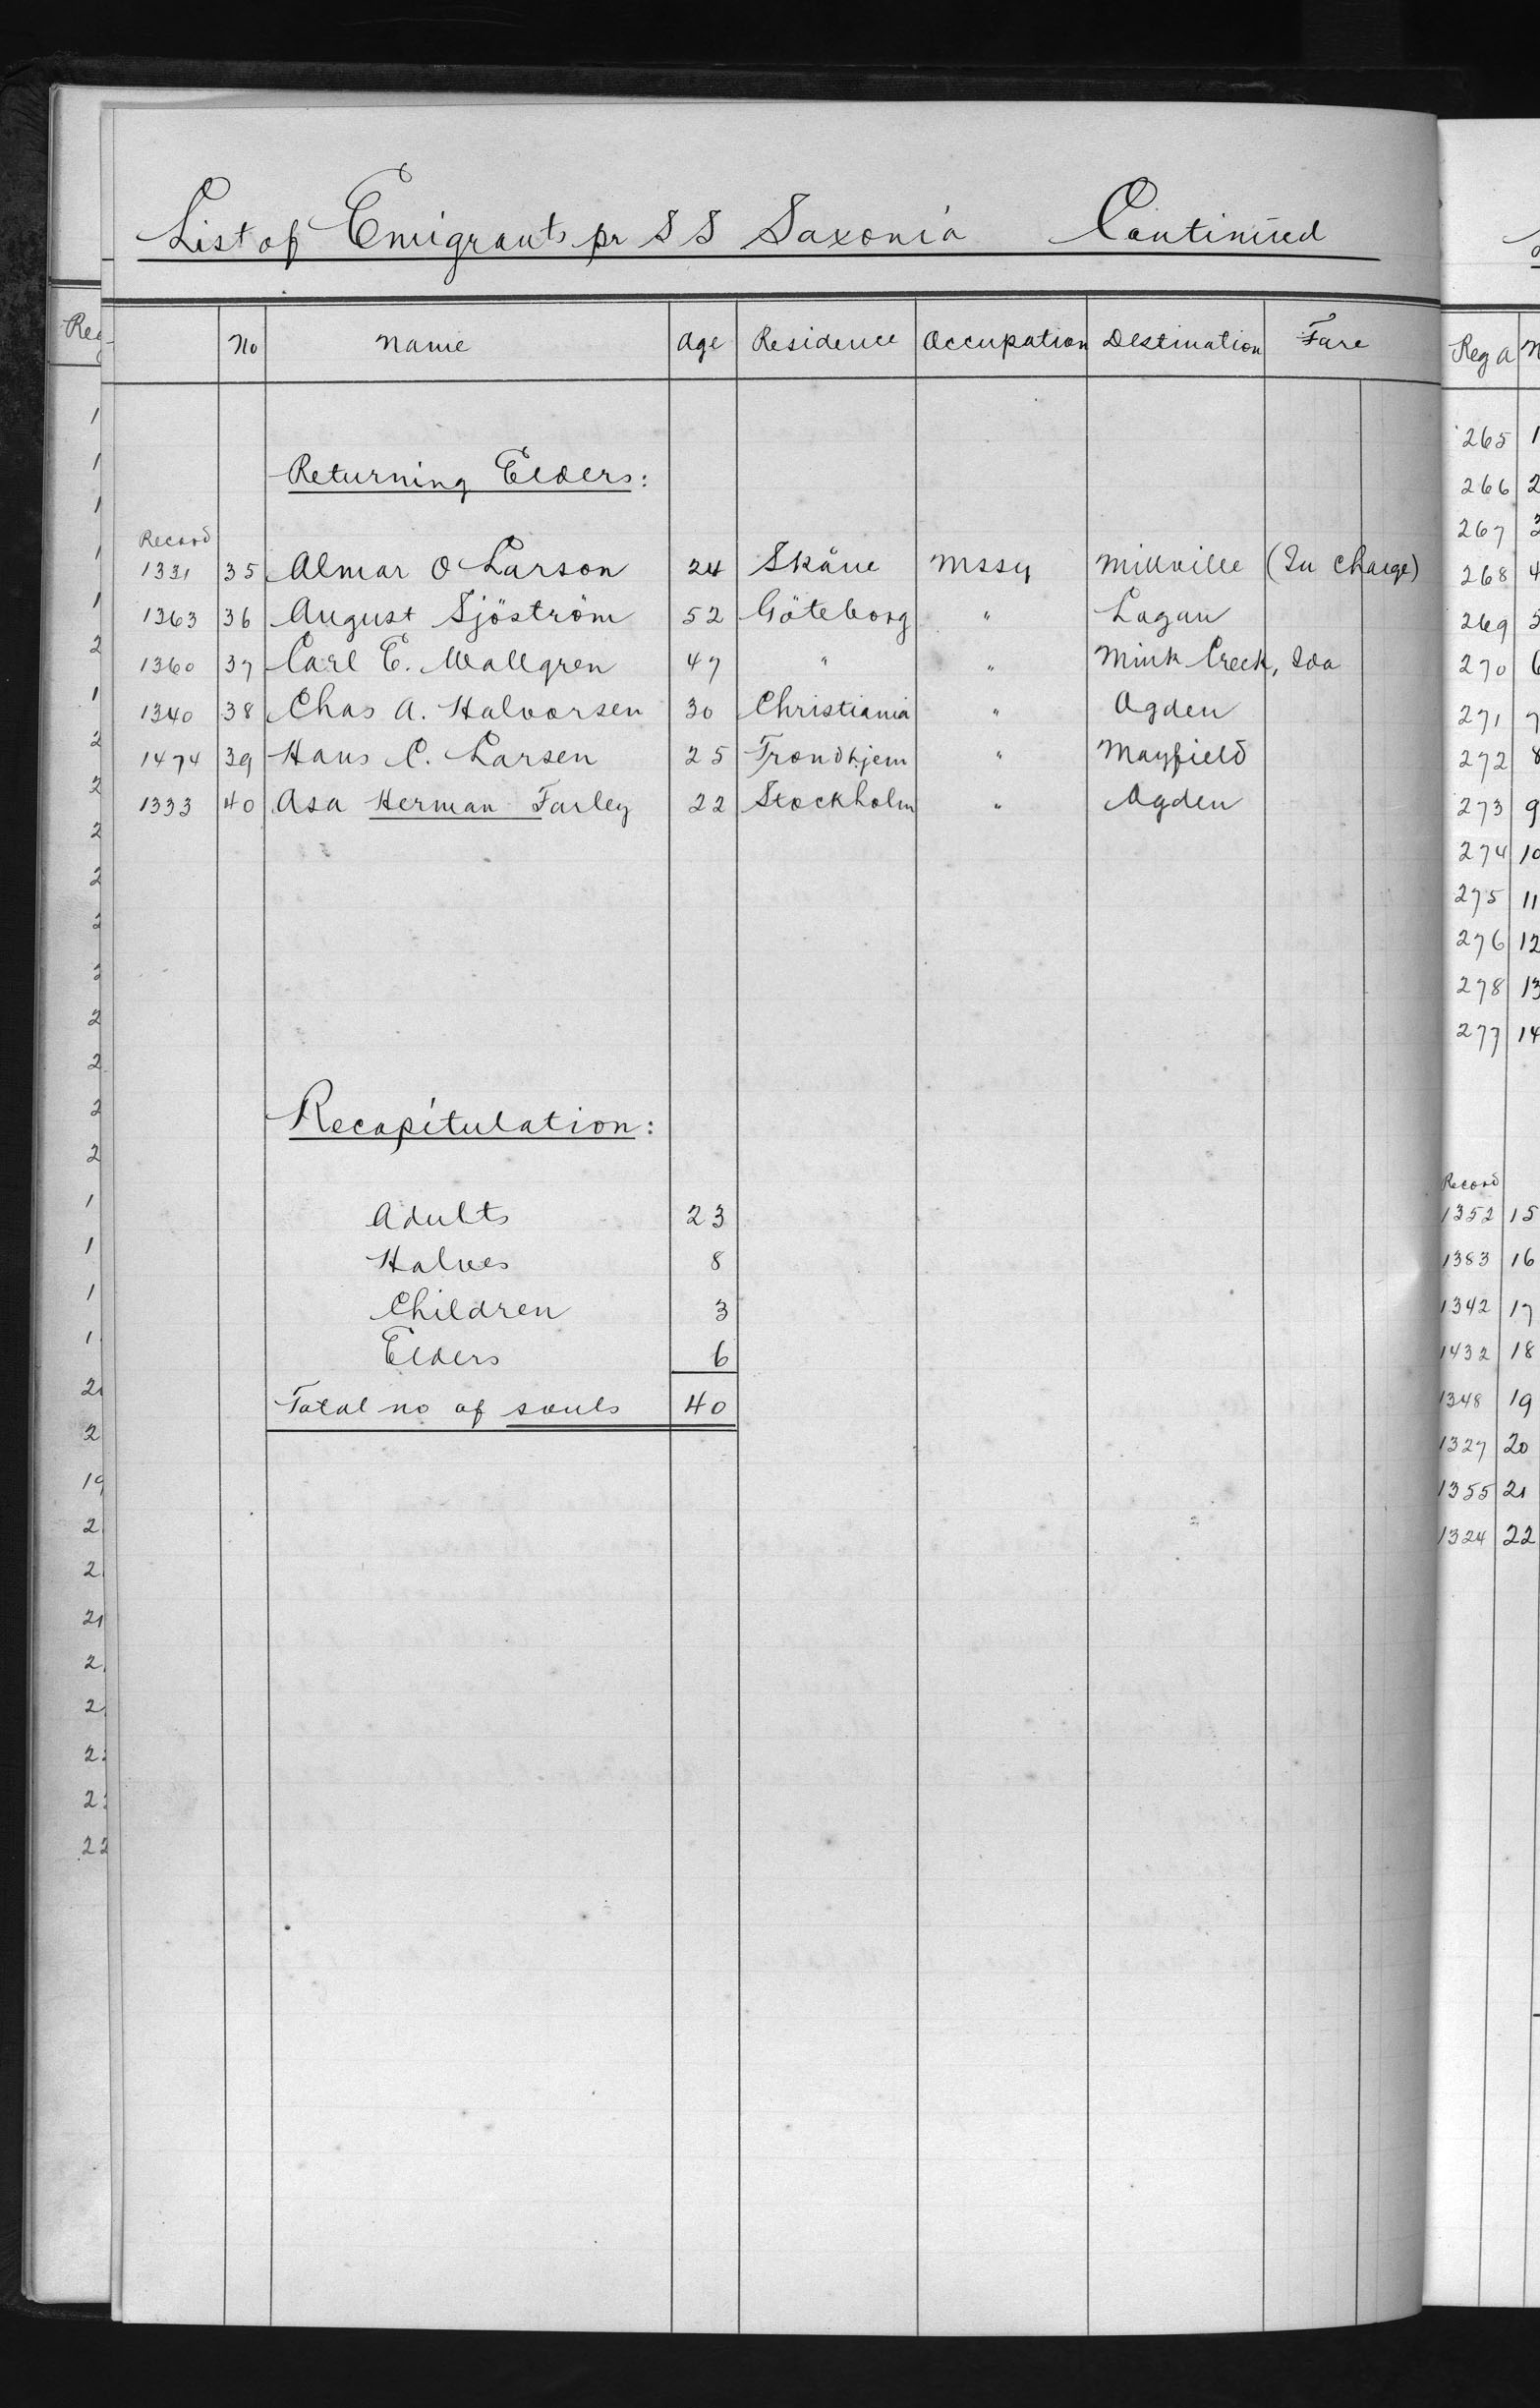 List of Emigrants pr S S Saxonia Continued
No Name Age Residence Occupation Destination Fare
Returning Elders:
Record
1331 35 Almar O Larson 24 Skåne Mssy Millville (In charge)
1363 36 August Sjöström 52 Göteborg " Logan
1360 37 Carl E. Wallgren 47 " " Mink Creek, Ida
1340 38 Chas A. Halvorsen 30 Christiania " Ogden
1474 39 Hans C. Larsen 25 Trondhjem " Mayfield
1333 40 Asa Herman Farley 22 Stockholm " Ogden
Recapitulation:
Adults 23
Halves 8
Children 3
Elders 6
Total no of souls 40
Reg a
265 1
266 2
267 3
268 4
269 5
270 6
271 7
272 8
273 9
274 10
275 11
276 12
278 13
277 14
Record
1352 15
1383 16
1342 17
1432 18
1348 19
1327 20
1355 21
1324 22